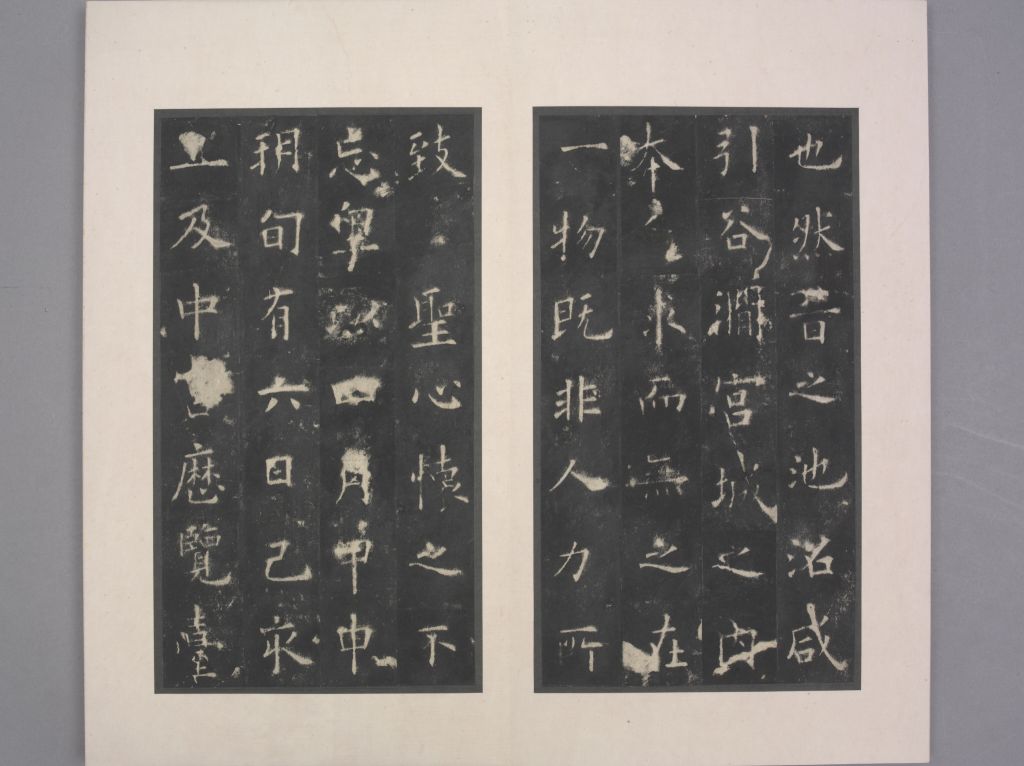 也然昔之池沼咸
引谷澗宮城之内
本乏水而無之在
一物既非人力所
致聖心懷之不
忘粵以四月甲申
朔旬有六日己亥
上及中宮歷覽臺